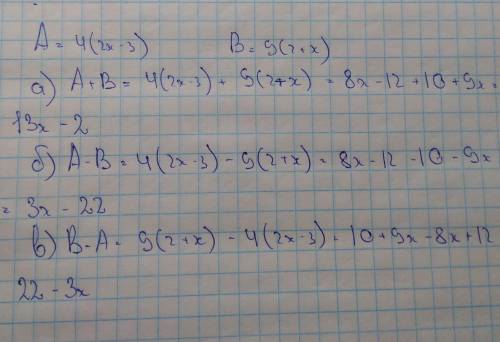 A = 4(2x-3) B = 5(2+x)
а) A+B = 4(2x-3) + 5(2+x) = 8x-12+10+5x =
13x - 2
б) A-B = 4(2x-3) - 5(2+x) = 8x-12-10-5x
= 3x - 22
в) B-A = 5(2+x) - 4(2x-3) = 10+5x-8x+12
22 - 3x